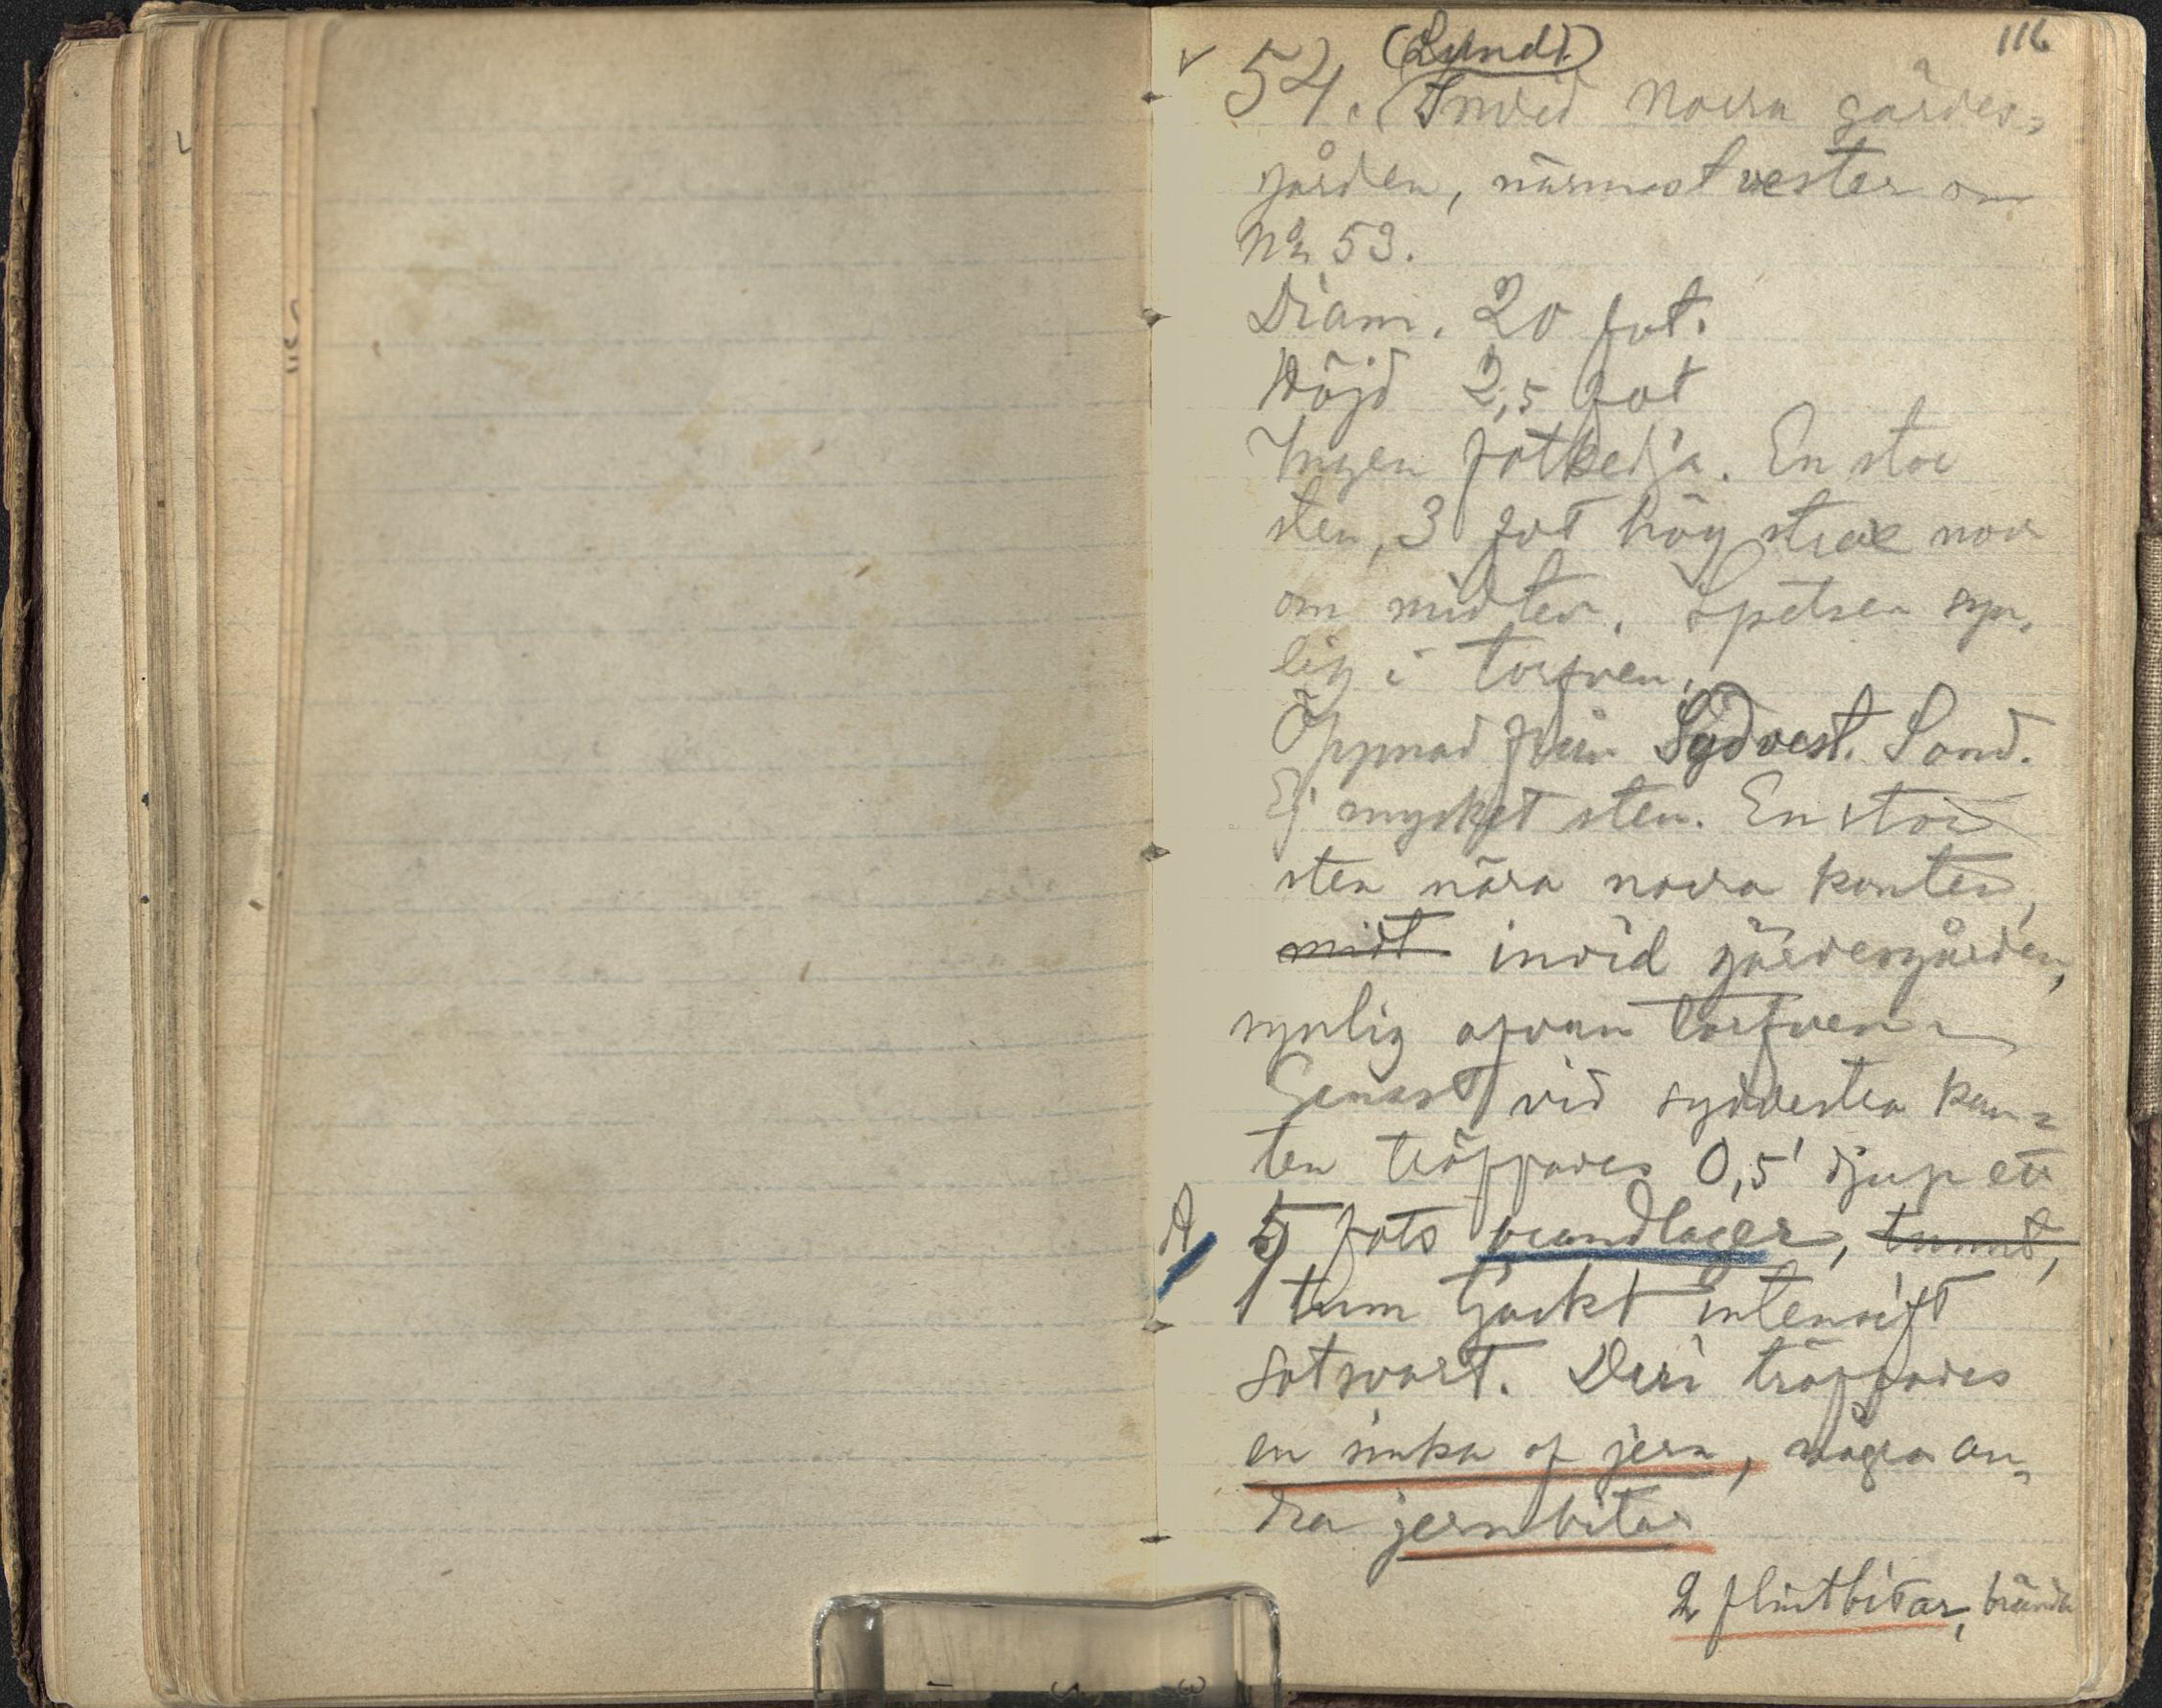 116
(Lund).
54. Invid norra gärdes-
gården, närmast vester om
No 53.
Diam. 20 fot.
Höjd 2,5 fot
Ingen fotkedja. En stor
sten, 3 fot hög strax norr
om midten. Spetsen syn-
lig i torfven.
Öppnad från Sydvest. Sand.
Ej mycket sten. En stor
sten nära norra kanten,
midt invid gärdesgården,
synlig ofvan torfven.
Genast vid sydvestra kan-
ten träffades 0,5' djup ett
A 5 fots brandlager, tunnt,
1 tum tjockt intensift
sotsvart. Deri träffades
en sinka af jern, några an-
dra jernbitar
2 flintbitar, brända